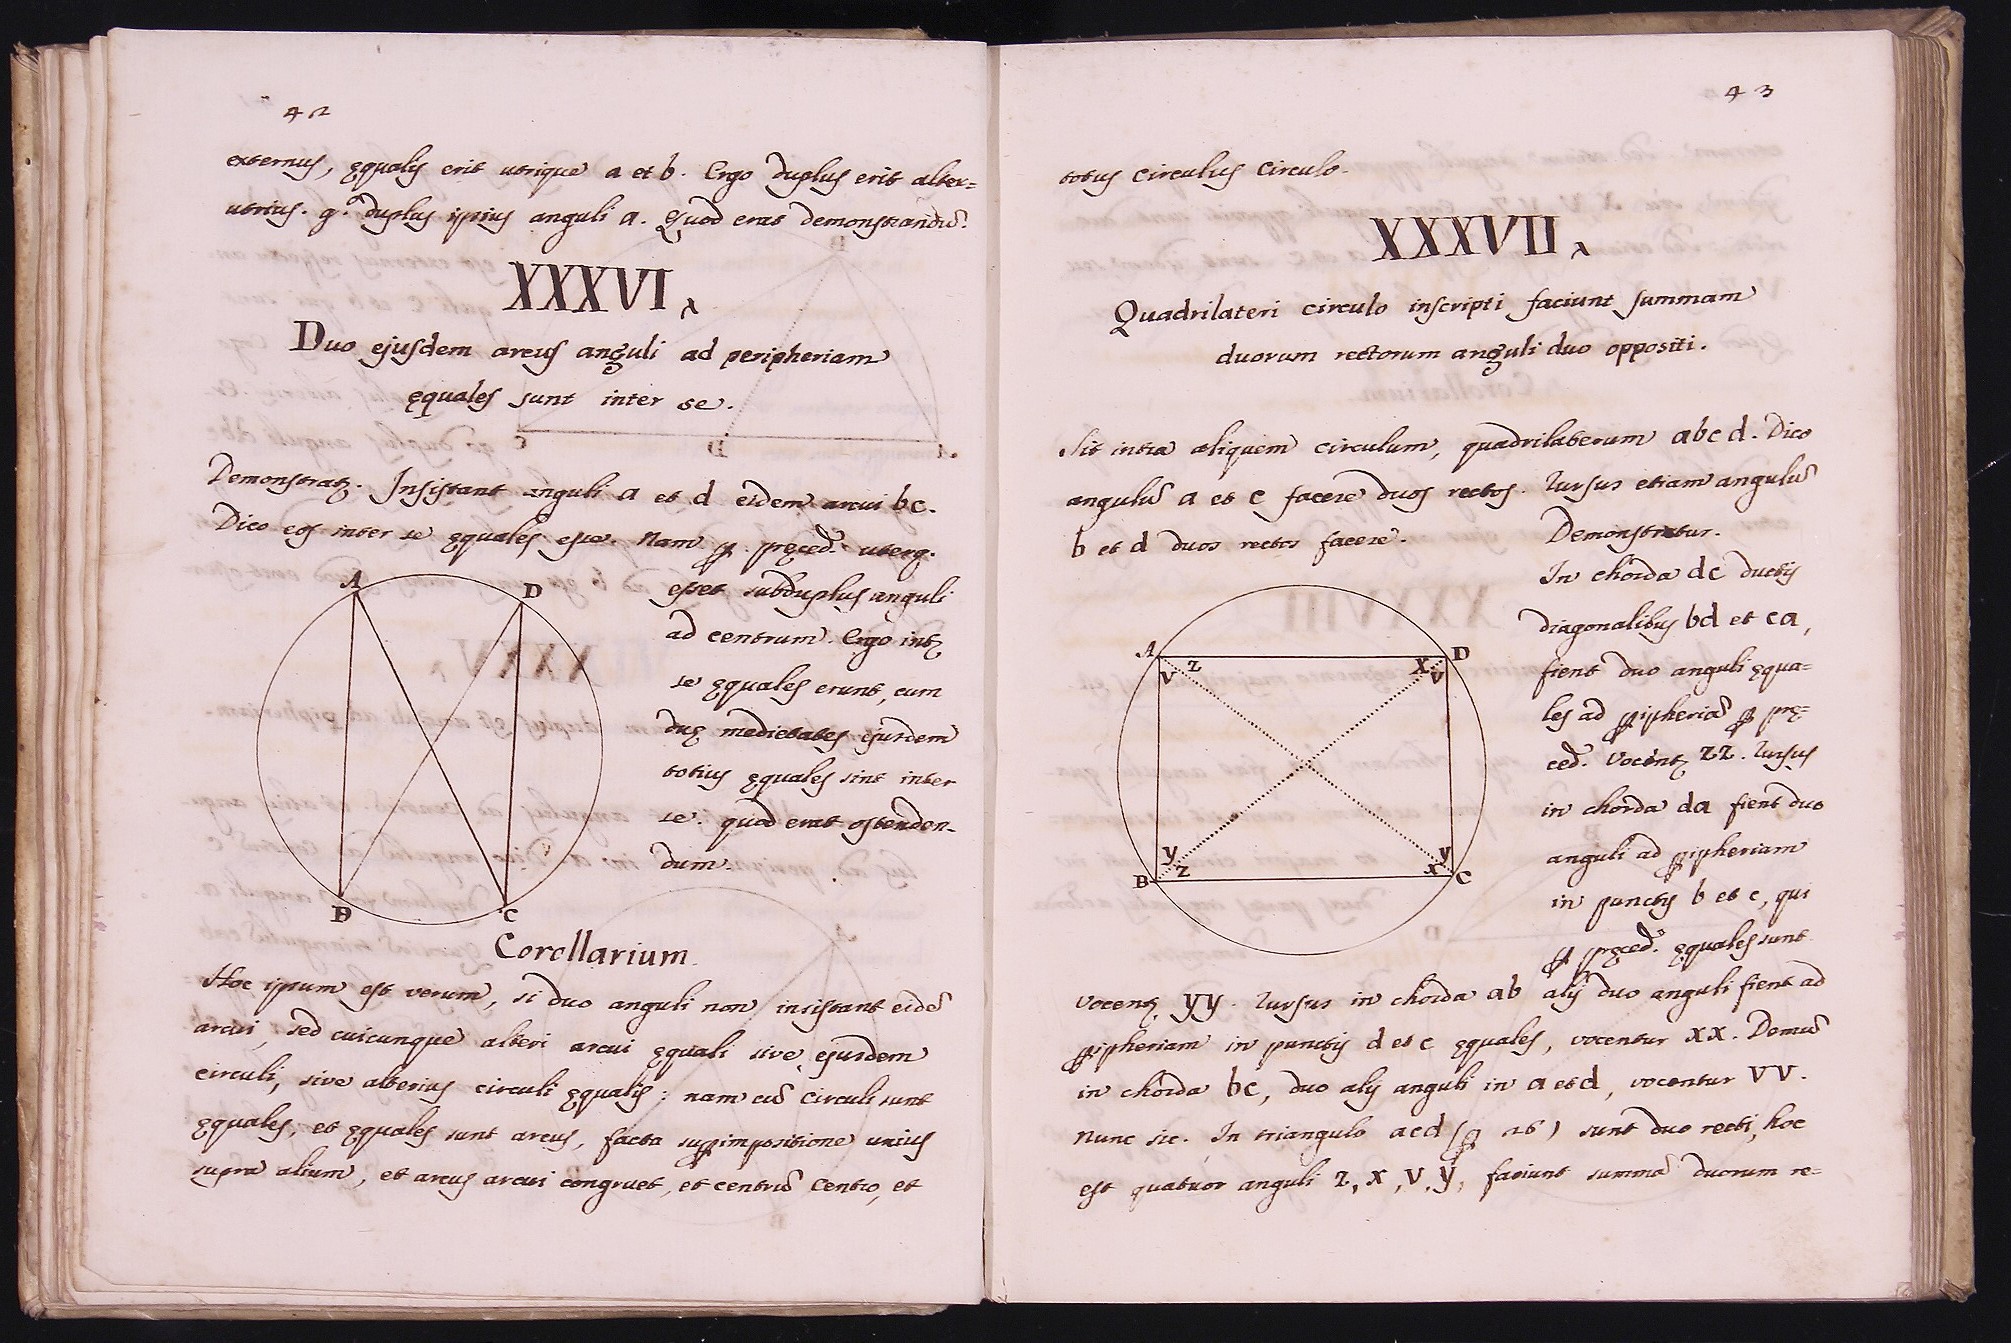 42
externus, ęqualis erit utrique a et b. Ergo duplus erit alter=
utrius. g.º duplus ipsius anguli a. Quod erat demonstrandũ.
XXXVI
Duo ejusdem arcus anguli ad peripheriam
ęquales sunt inter se.
Demonstratz. Insistant anguli a et d eidem arcui bc.
Dico eos inter se ęquales esse. Nam ꝑ pręced. uterq.
A
D
B
C
esset subduplus anguli
ad centrum. Ergo intz
se ęquales erunt, cum
duę medietates ejusdem
totius ęquales sint inter
se. quod erat ostenden-
dum.
Corollarium.
Hoc ipsum est verum, si duo anguli non insistant eidẽ
arcui, sed cuicunque alteri arcui ęquali sive ejusdem
circuli, sive alterius circuli ęqualis: nam cũ circuli sunt
ęquales, et ęquales sunt arcus, facta suꝑimpositione unius
supra alium, et arcus arcui congruet, et centrũ centro, et
43
totus circulus circulo.
XXXVII
Quadrilateri circulo inscripti faciunt summam
duorum rectorum anguli duo oppositi.
Sit intra aliquem circulum, quadrilaterum abcd. Dico
angulũ a et c facere duos rectos. Rursus etiam angulũ
b et d duos rectos facere.
Demonstratur.
In chorda dc ductis
diagonalibus bd et ca,
fient duo anguli ęqua=
les ad ꝑipheriã ꝑ prę=
ced. vocentz zz. Rursus
in chorda da fient duo
anguli ad ꝑipheriam
in punctis b et c, qui
ꝑ pręced. ęquales sunt
A
z
v
X
v
D
B
y
z
y
x
C
vocentz yy. Rursus in chorda ab alij duo anguli fient ad
ꝑipheriam in punctis d et c ęquales, vocentur xx. Demũ
in chorda bc, duo alij anguli in a et d, vocentur VV.
Nunc sic. In triangulo acd (ꝑ 26) sunt duo recti, hoc
est quatuor anguli z, x, v, y, faciunt summã duorum re=